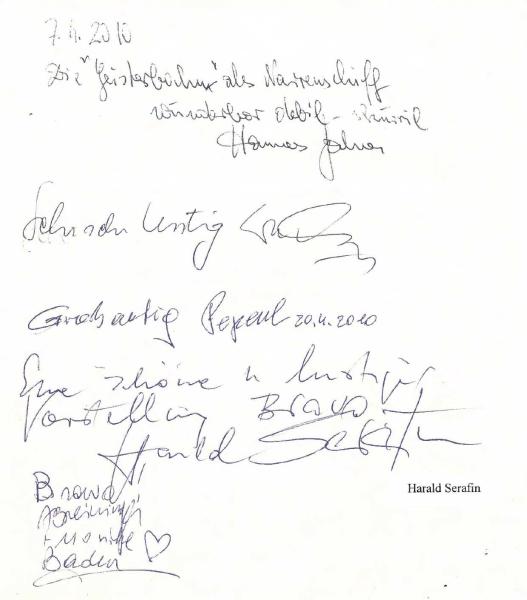 7.4.2010
Die "Geisterbahn" als Narrenschiff
wunderbar debil - skurril
Hannes
Sehr sehr lustig
Großartig 20.4.2010
Eine schöne u lustige
Vorstellung Bravo!
Harald Serafin
Harald Serafin
Bravo
+ Monika
Baden